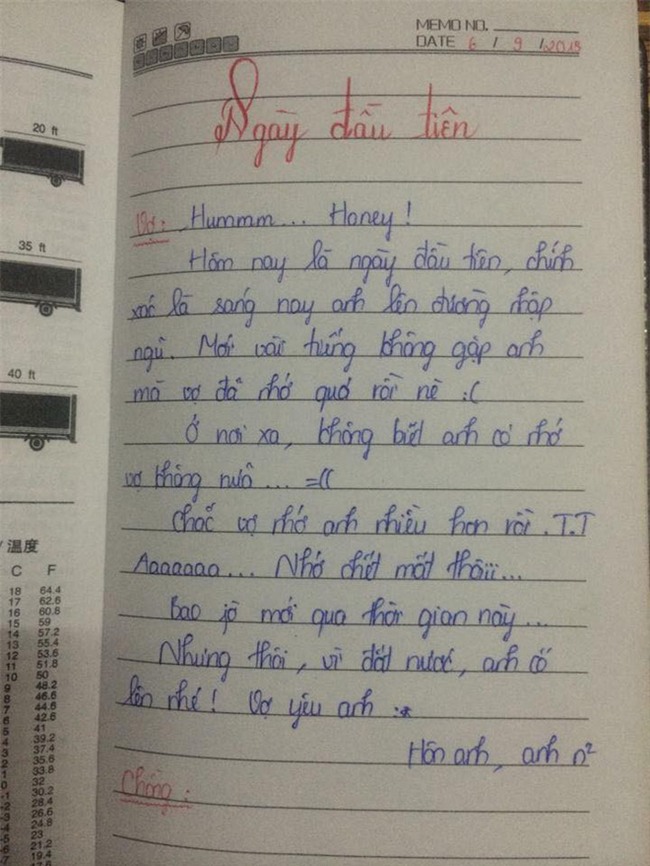 20 ft
35 ft
40 ft
/ 温度
C F
18 64.4
17 62.6
16 60.8
15 59
14 57.2
13 55.4
12 53.6
11 51.8
10 50
9 48.2
8 46.6
7 44.6
6 42.6
5 41
4 39.2
3 37.4
2 35.6
1 33.8
0 32
-1 30.2
-2 28.4
-3 26.6
-4 24.8
-5 23
21.2
19.4
MEMO NO.
DATE 6 / 9 / 2015
Ngày đầu tiên
Vợ: Hummm... Honey!
Hôm nay là ngày đầu tiên, chính
xác là sáng nay anh lên đường nhập
ngũ. Mới vài tiếng không gặp anh
mà vợ đã nhớ quá rồi nè :(
Ở nơi xa, không biết anh có nhớ
vợ không nưã... =((
Chắc vợ nhớ anh nhiều hơn rồi. T.T
Aaaaaaa... Nhớ chết mất thôiii...
Bao jờ mới qua thời gian này...
Nhưng thôi, vì đất nước, anh cố
lên nhé! Vợ yêu anh :*
Hôn anh, anh n²
Chồng: